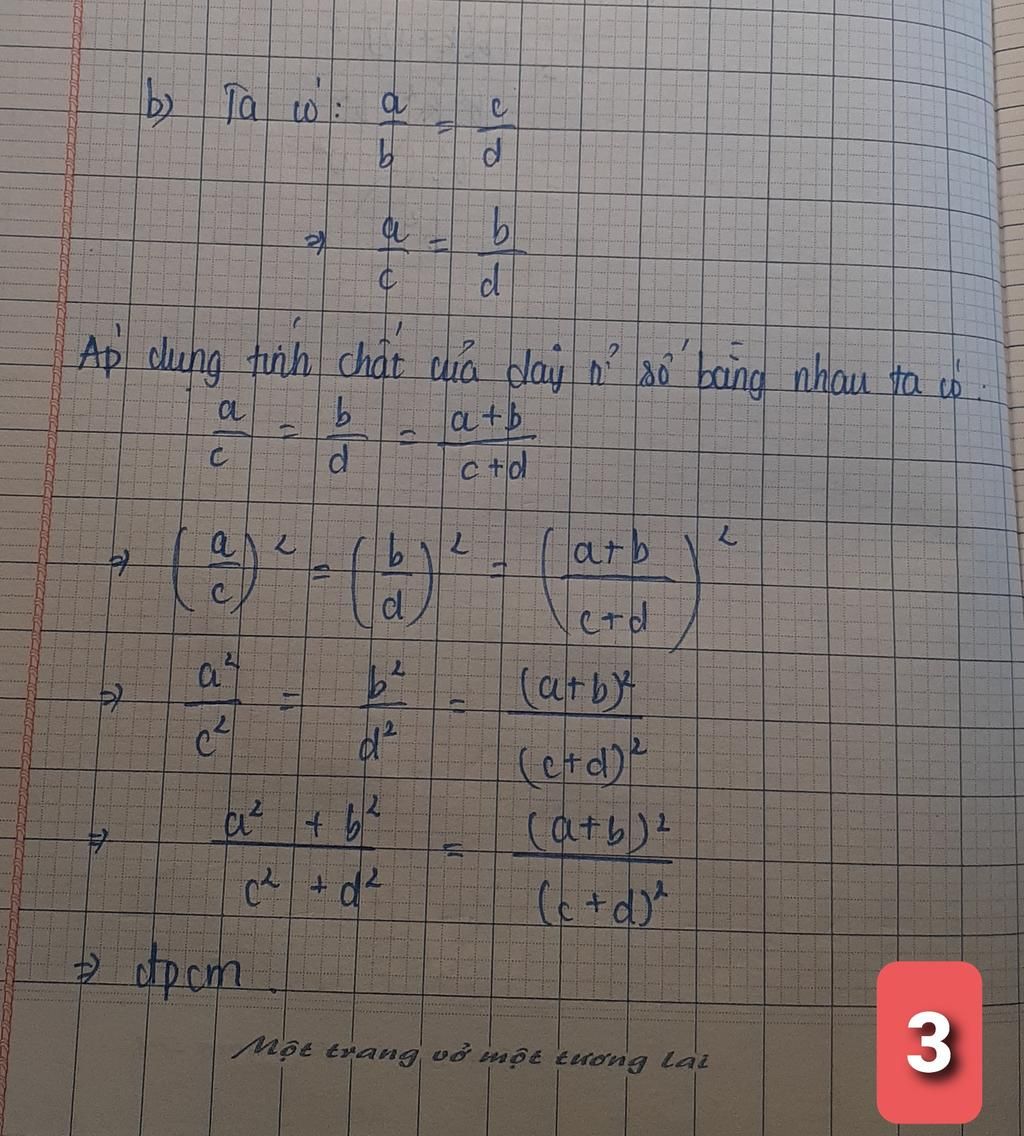 b) Ta có: a/b = c/d
⇒ a/c = b/d
Áp dụng tính chất của dãy tỉ số bằng nhau ta có:
a/c = b/d = (a+b)/(c+d)
⇒ (a/c)² = (b/d)² = ((a+b)/(c+d))²
⇒ a²/c² = b²/d² = (a+b)²/(c+d)²
⇒ (a² + b²)/(c² + d²) = (a+b)²/(c+d)²
⇒ đpcm.
Một trang vở một tương lai
3